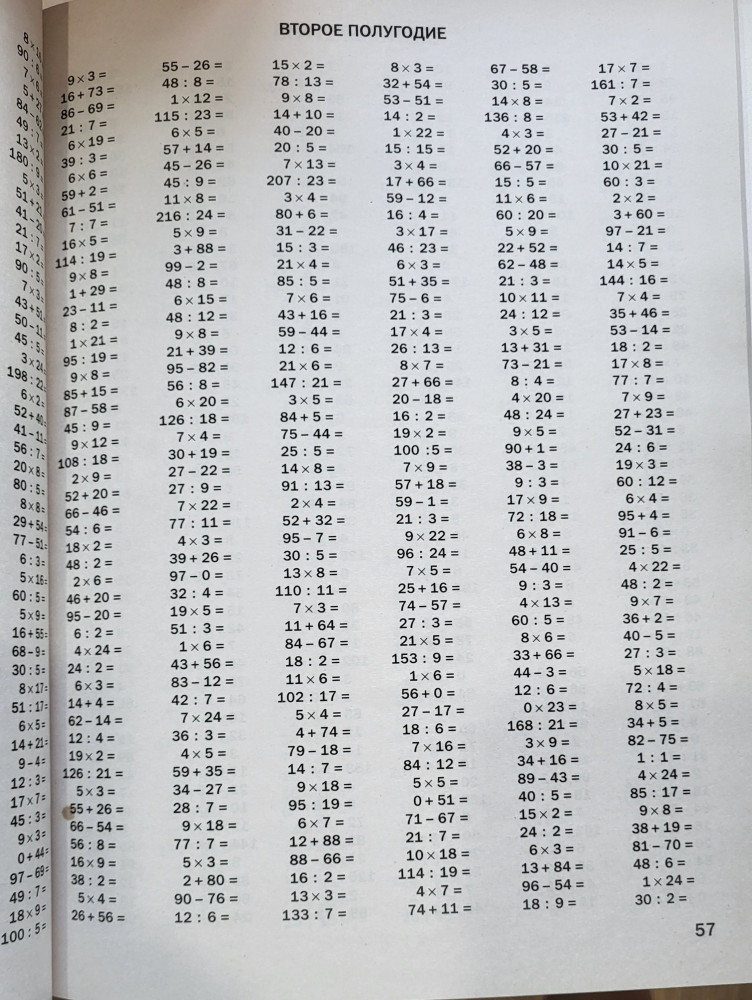 ВТОРОЕ ПОЛУГОДИЕ
49 : 7
180 : 9
90 : 5
45 : 5
3 × 24
41 – 11
56 : 7
20 × 8
80 : 5
8 × 8
29 + 54
77 – 51
6 : 3
5 × 16
60 : 5
5 × 9
16 + 55
68 – 9
30 : 5
8 × 17
51 : 17
6 × 5
14 + 21
9 – 4
12 : 3
17 × 7
45 : 3
9 × 3
0 + 44
97 – 69
49 : 7
18 × 9
100 : 5
9 × 3 =
16 + 73 =
86 – 69 =
21 : 7 =
6 × 19 =
39 : 3 =
6 × 6 =
59 + 2 =
61 – 51 =
7 : 7 =
16 × 5 =
114 : 19 =
9 × 8 =
1 + 29 =
23 – 11 =
8 : 2 =
1 × 21 =
95 : 19 =
9 × 8 =
85 + 15 =
87 – 58 =
45 : 9 =
9 × 12 =
108 : 18 =
2 × 9 =
52 + 20 =
66 – 46 =
54 : 6 =
18 × 2 =
48 : 2 =
2 × 6 =
46 + 20 =
95 – 20 =
6 : 2 =
4 × 24 =
24 : 2 =
6 × 3 =
14 + 4 =
62 – 14 =
12 : 4 =
19 × 2 =
126 : 21 =
5 × 3 =
55 + 26 =
66 – 54 =
56 : 8 =
16 × 9 =
38 : 2 =
5 × 4 =
26 + 56 =
55 – 26 =
48 : 8 =
1 × 12 =
115 : 23 =
6 × 5 =
57 + 14 =
45 – 26 =
45 : 9 =
11 × 8 =
216 : 24 =
5 × 9 =
3 + 88 =
99 – 2 =
48 : 8 =
6 × 15 =
48 : 12 =
9 × 8 =
21 + 39 =
95 – 82 =
56 : 8 =
6 × 20 =
126 : 18 =
7 × 4 =
30 + 19 =
27 – 22 =
27 : 9 =
7 × 22 =
77 : 11 =
4 × 3 =
39 + 26 =
97 – 0 =
32 : 4 =
19 × 5 =
51 : 3 =
1 × 6 =
43 + 56 =
83 – 12 =
42 : 7 =
7 × 24 =
36 : 3 =
4 × 5 =
59 + 35 =
34 – 27 =
28 : 7 =
9 × 18 =
77 : 7 =
5 × 3 =
2 + 80 =
90 – 76 =
12 : 6 =
15 × 2 =
78 : 13 =
9 × 8 =
14 + 10 =
40 – 20 =
20 : 5 =
7 × 13 =
207 : 23 =
3 × 4 =
80 + 6 =
31 – 22 =
15 : 3 =
21 × 4 =
85 : 5 =
7 × 6 =
43 + 16 =
59 – 44 =
12 : 6 =
21 × 6 =
147 : 21 =
3 × 5 =
84 + 5 =
75 – 44 =
25 : 5 =
14 × 8 =
91 : 13 =
2 × 4 =
52 + 32 =
95 – 7 =
30 : 5 =
13 × 8 =
110 : 11 =
7 × 3 =
11 + 64 =
84 – 67 =
18 : 2 =
11 × 6 =
102 : 17 =
5 × 4 =
4 + 74 =
79 – 18 =
14 : 7 =
9 × 18 =
95 : 19 =
6 × 7 =
12 + 88 =
88 – 66 =
16 : 2 =
13 × 3 =
133 : 7 =
8 × 3 =
32 + 54 =
53 – 51 =
14 : 2 =
1 × 22 =
15 : 15 =
3 × 4 =
17 + 66 =
59 – 12 =
16 : 4 =
3 × 17 =
46 : 23 =
6 × 3 =
51 + 35 =
75 – 6 =
21 : 3 =
17 × 4 =
26 : 13 =
8 × 7 =
27 + 66 =
20 – 18 =
16 : 2 =
19 × 2 =
100 :5 =
7 × 9 =
57 + 18 =
59 – 1 =
21 : 3 =
9 × 22 =
96 : 24 =
7 × 5 =
25 + 16 =
74 – 57 =
27 : 3 =
21 × 5 =
153 : 9 =
1 × 6 =
56 + 0 =
27 – 17 =
18 : 6 =
7 × 16 =
84 : 12 =
5 × 5 =
0 + 51 =
71 – 67 =
21 : 7 =
10 × 18 =
114 : 19 =
4 × 7 =
74 + 11 =
67 – 58 =
30 : 5 =
14 × 8 =
136 : 8 =
4 × 3 =
52 + 20 =
66 – 57 =
15 : 5 =
11 × 6 =
60 : 20 =
5 × 9 =
22 + 52 =
62 – 48 =
21 : 3 =
10 × 11 =
24 : 12 =
3 × 5 =
13 + 31 =
73 – 21 =
8 : 4 =
4 × 20 =
48 : 24 =
9 × 5 =
90 + 1 =
38 – 3 =
9 : 3 =
17 × 9 =
72 : 18 =
6 × 8 =
48 + 11 =
54 – 40 =
9 : 3 =
4 × 13 =
60 : 5 =
8 × 6 =
33 + 66 =
44 – 3 =
12 : 6 =
0 × 23 =
168 : 21 =
3 × 9 =
34 + 16 =
89 – 43 =
40 : 5 =
15 × 2 =
24 : 2 =
6 × 3 =
13 + 84 =
96 – 54 =
18 : 9 =
17 × 7 =
161 : 7 =
7 × 2 =
53 + 42 =
27 – 21 =
30 : 5 =
10 × 21 =
60 : 3 =
2 × 2 =
3 + 60 =
97 – 21 =
14 : 7 =
14 × 5 =
144 : 16 =
7 × 4 =
35 + 46 =
53 – 14 =
18 : 2 =
17 × 8 =
77 : 7 =
7 × 9 =
27 + 23 =
52 – 31 =
24 : 6 =
19 × 3 =
60 : 12 =
6 × 4 =
95 + 4 =
91 – 6 =
25 : 5 =
4 × 22 =
48 : 2 =
9 × 7 =
36 + 2 =
40 – 5 =
27 : 3 =
5 × 18 =
72 : 4 =
8 × 5 =
34 + 5 =
82 – 75 =
1 : 1 =
4 × 24 =
85 : 17 =
9 × 8 =
38 + 19 =
81 – 70 =
48 : 6 =
1 × 24 =
30 : 2 =
57